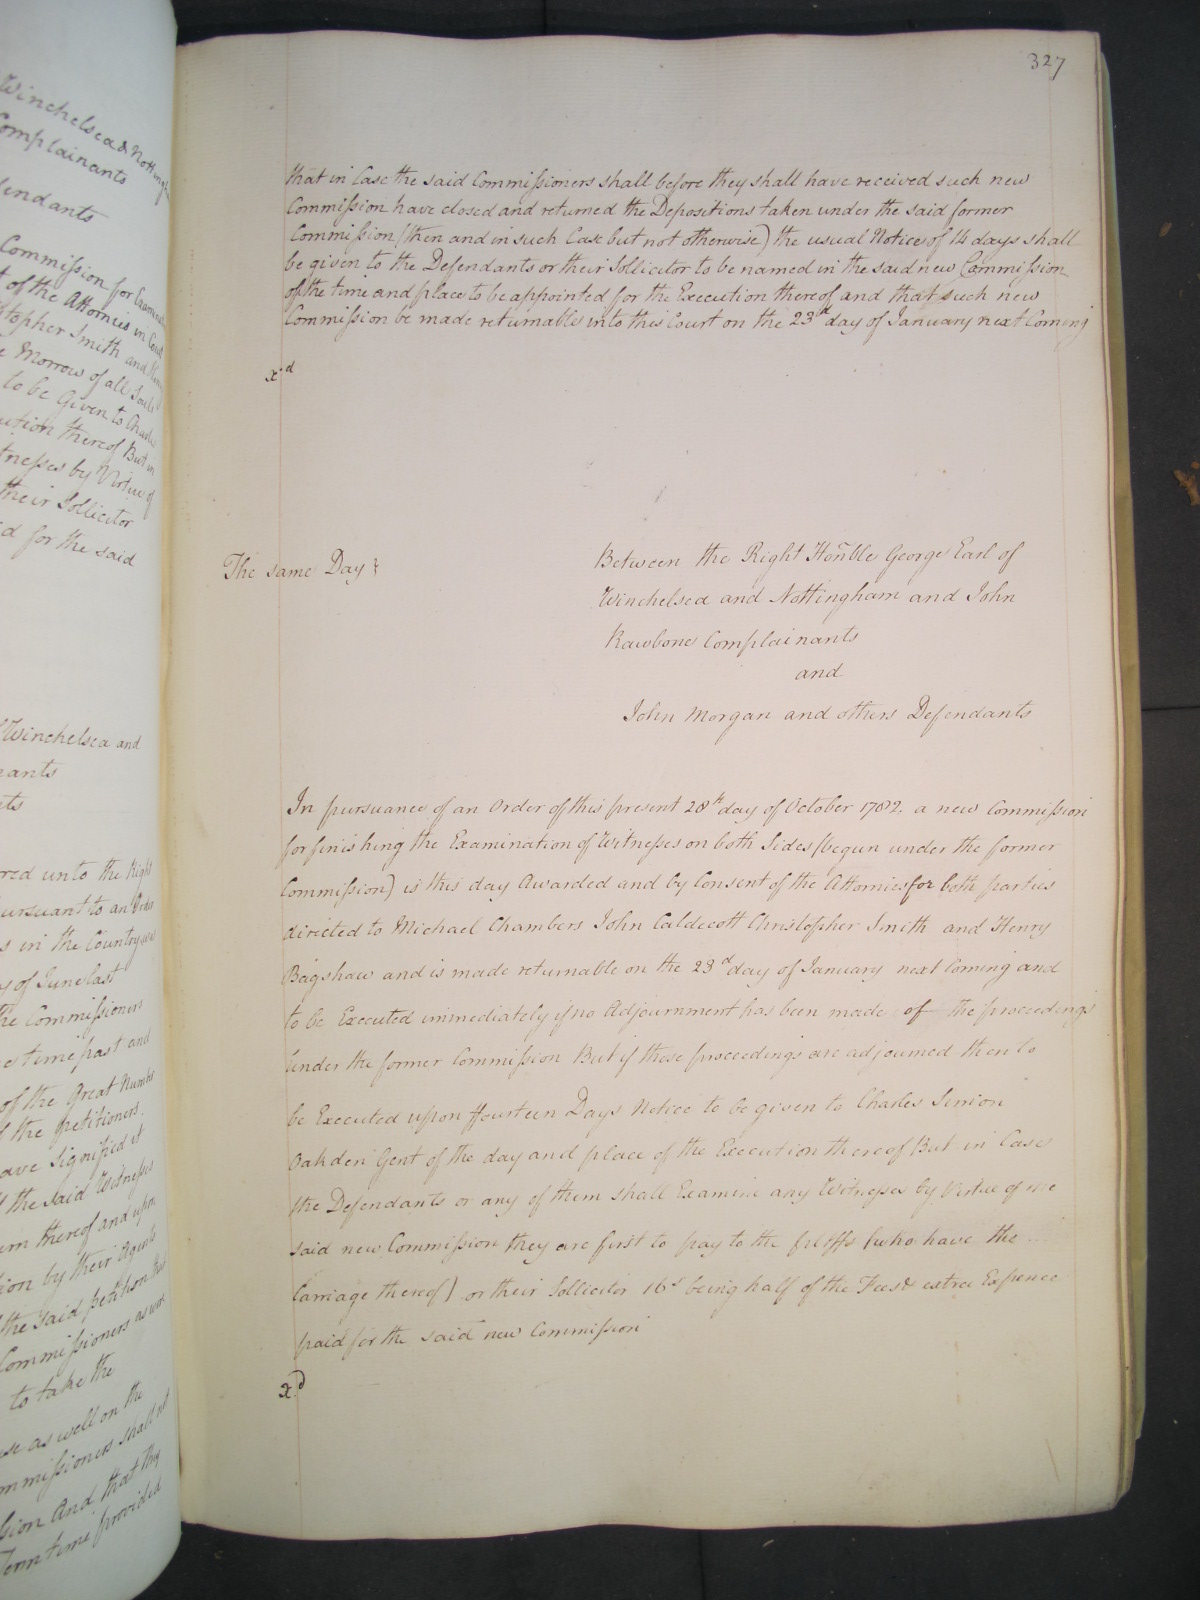 Winchelsea & Nottingham
Complainants
endants
Commission for Examin
t of the Attornies in Court
stopher Smith and Hen
e Morrow of all Souls
to be Given to Charles
ution thereof But in
tnesses by Virtue of
their Sollicitor
d for the said
Winchelsea and
nants
nts
red unto the Right
ursuant to an Order
s in the Country was
y of June last
the Commissioners
e time past and
of the Great Number
the petitioners
ave Signified it
the said Witnesses
urn thereof and upon
ion by their Agents
the said petition that
Commissioners as were
to take the
se as well on the
mmissioners shall not
sion And that they
Term time provided
327
that in Case the said Commissioners shall before they shall have received such new
Commission have closed and returned the Depositions taken under the said former
Commission (then and in such Case but not otherwise) the usual Notice of 14 days shall
be given to the Defendants or their Sollicitor to be named in the said new Commission
of the time and place to be appointed for the Execution thereof and that such new
Commission be made returnable into this Court on the 23d day of January next Coming
x.d
The same Day
Between the Right Honble George Earl of
Winchelsea and Nottingham and John
Rawbone Complainants
and
John Morgan and others Defendants
In pursuance of an Order of this present 28th day of October 1782. a new Commission
for finishing the Examination of Witnesses on both Sides (begun under the former
Commission) is this day Awarded and by Consent of the Attornies for both parties
directed to Michael Chambers John Caldecott Christopher Smith and Henry
Bagshaw and is made returnable on the 23d day of January next Coming and
to be Executed immediately if no Adjournment has been made of the proceedings
under the former Commission But if those proceedings are adjourned then to
be Executed upon ffourteen Days Notice to be given to Charles Simion
Oakden Gent of the day and place of the Execution thereof But in Case
the Defendants or any of them shall Examine any Witnesses by Virtue of the
said new Commission they are first to pay to the pltffs (who have the
Carriage thereof) or their Sollicitor 16s being half of the Fees & extra Expence
paid for the said new Commission
x.d